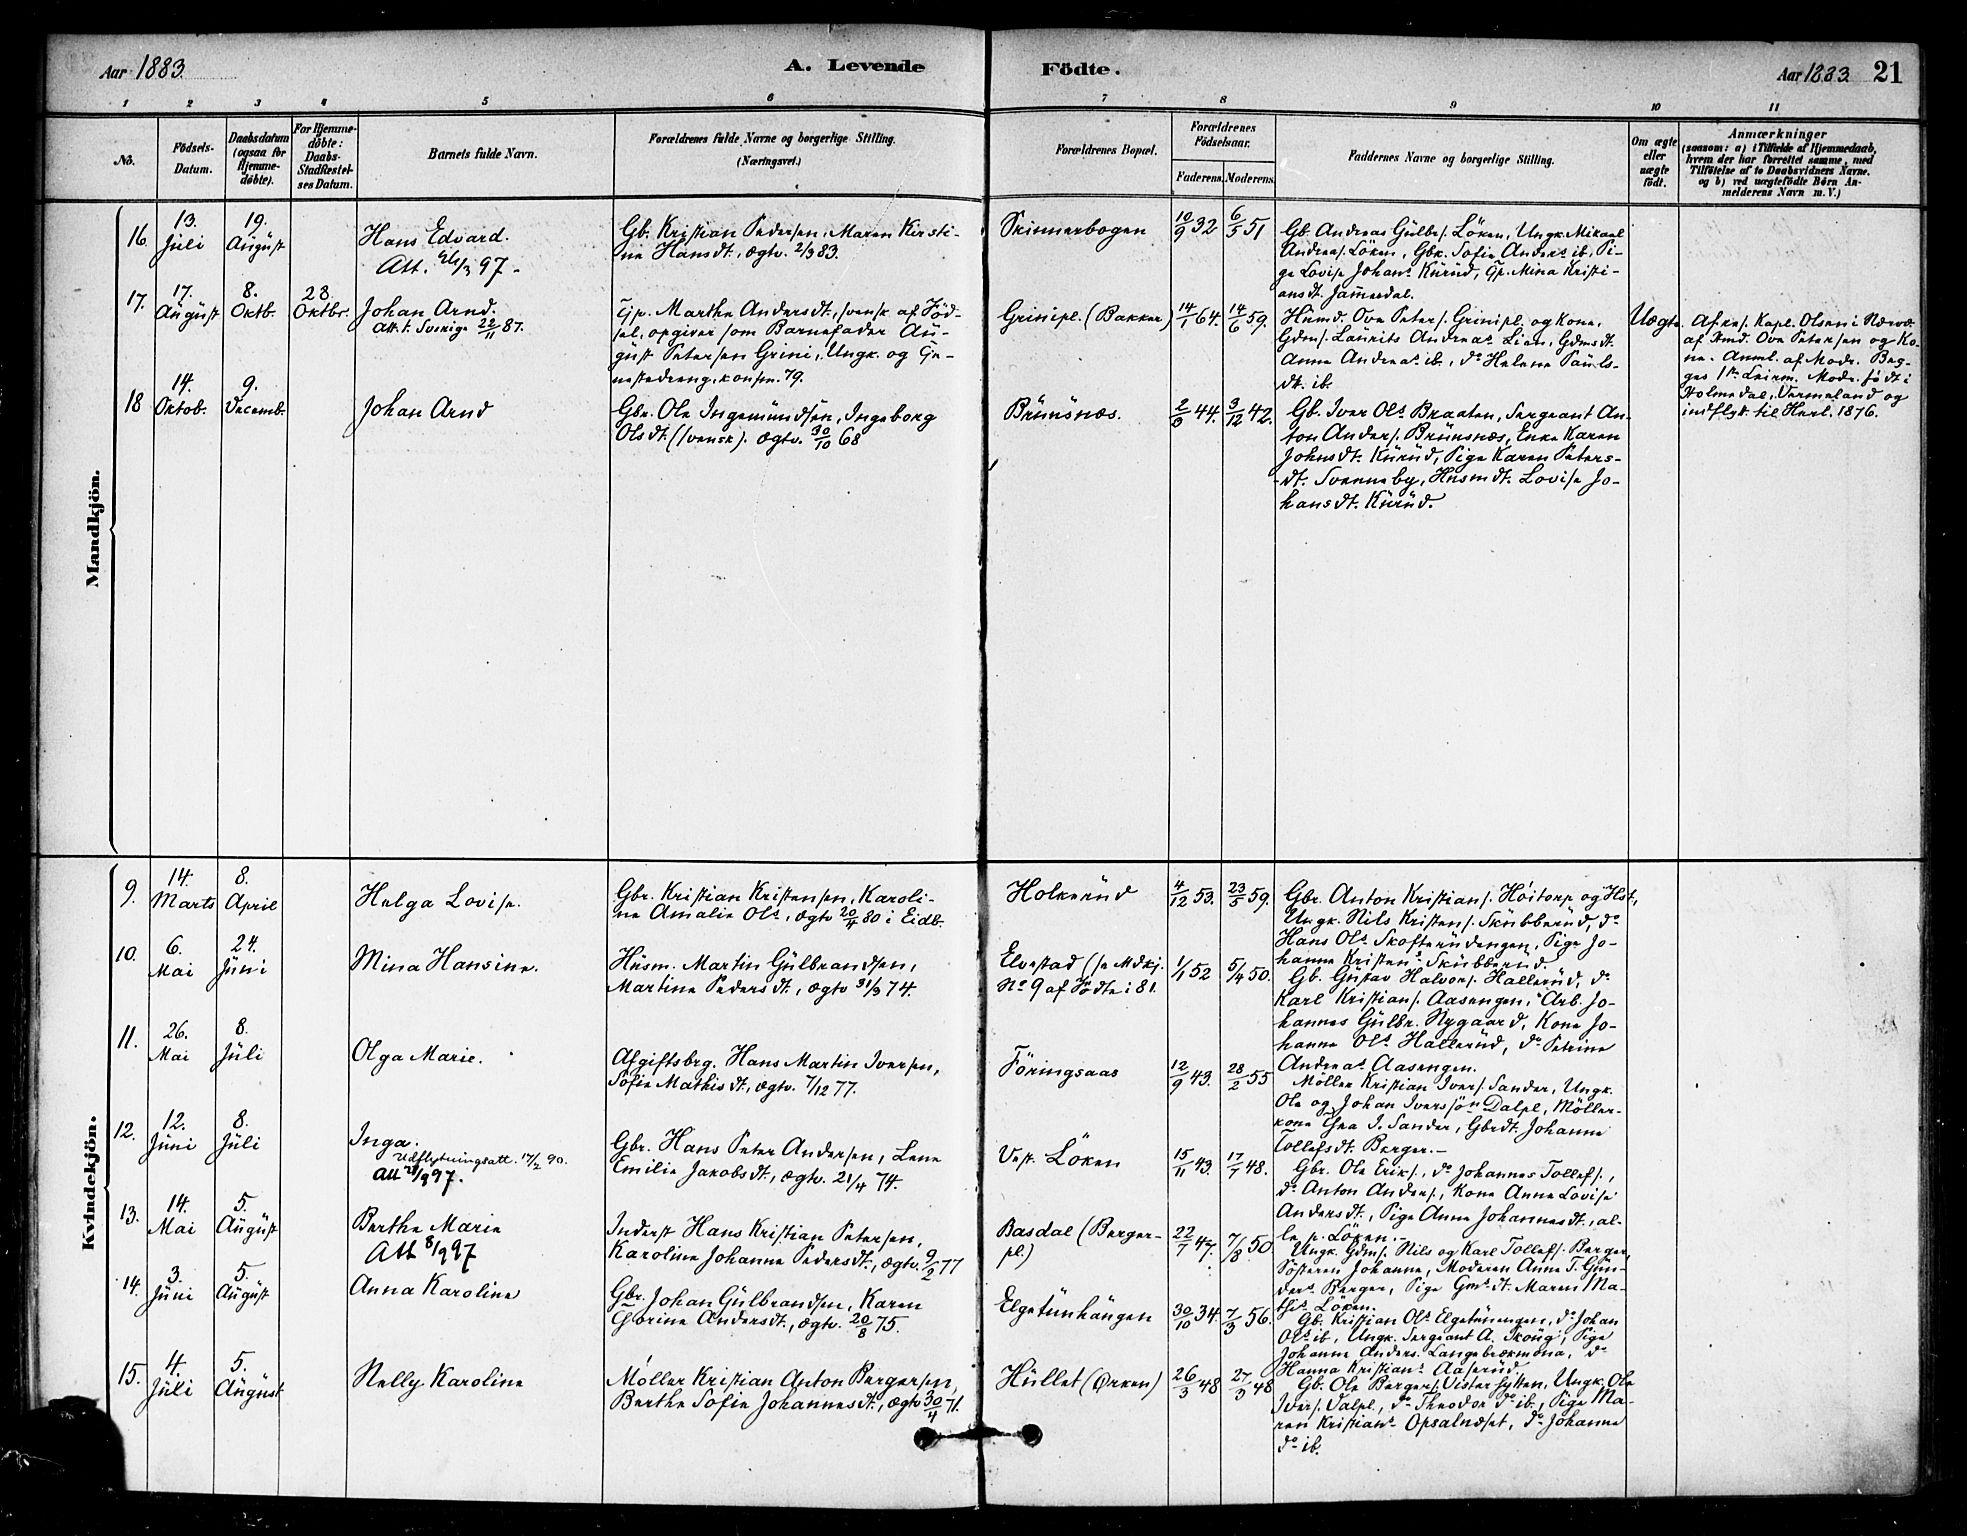 Aar 1883.
A. Levende
Födte.
Aar 1883. 21
1 2 3 4 5 6 7 8 9 10 11
No.
Födsels-
Datum.
Daabsdatum
(ogsaa for
Hjemme-
døbte).
For Hjemme-
døbte:
Daabs-
Stadfæstel-
ses Datum.
Barnets fulde Navn.
Forældrenes fulde Navne og borgerlige Stilling.
(Næringsvei.)
Forældrenes Bopæl.
Forældrenes
Födselsaar.
Faderens. Moderens.
Faddernes Navne og borgerlige Stilling.
Om ægte
eller
uægte
født.
Anmærkninger
(saasom: a) i Tilfælde af Hjemmedaab,
hvem der har forrettet samme, med
Tilføielse af to Daabsvidners Navne.
og b) ved uægtefødte Børn An-
melderens Navn m. V.)
Mandkjön.
16.
13.
Juli
19.
August
Hans Edvard.
Att. 97.
Gb. Kristian Pedersen, Maren Kirsti-
ne Hansdt., ægtv. 2/3 83.
Skinnerbogen
10/9 32
6/5 51
Gb. Andreas Gulbs. Löken, Ungk. Mikael
Andreas. Löken, Gbk. Sofie Anders. ib, Pi-
ge Lovise Johans. Kürüd, Gp. Mina Kristi-
ansdt. Jammerdal.
17.
17.
August
8.
Oktb.
28.
Oktbr.
Johan Arnd.
Att. t. Sverige 22/11 87.
Tjp. Marthe Andersdt., svensk af Föd-
sel, opgiver som Barnefader Au-
gust Petersen Grini, Ungk. og
konfm. 79.
Grinipl. (Bakken)
14/1 64.
14/6 59.
Husmd. Ove Peters. Grinipl. og Kone,
Gdms. Laurits Andreas. Lien, Gdmsdt.
Anne Andreas. ib., do Helene Pauls-
dt. ib.
Uægte
Af res. Kapl. Olsen i Nærv.
af Hmd. Ove Petersen og Ko-
ne. Anml. af Modr. Beg-
ges 1ste Leirm. Modr. født i
Holmedal, Vermeland og
indflyt. til Herl. 1876.
18
14.
Oktob.
9.
Decemb.
Johan Arnd
Gbr. Ole Ingemundsen, Ingeborg
Olsdt. (svensk). ægtv. 30/10 68
Brünsnæs.
44.
3/12 42.
Gb. Iver Ols. Braaten, Sergeant An-
ton Anders. Brünsnæs, Enke Karen
Johnsdt. Kürüd, Pige Karen Peters-
dt. Svenneby, Husmdt. Lovise Jo-
hansdt. Kürüd.
Kvindekjön.
9.
14.
Marts
8.
April
Helga Lovise.
Gbr. Kristian Kristensen, Karoli-
ne Amalie Ols., ægtv 20/4 80 i Eidb.
Holkerüd
4/12 53.
23/5 59.
Gbr. Anton Kristians. Höitorp og Hst,
Ungk. Nils Kristens. Skübberüd, do
Hans Ols. Skofterüdengen, Pige Jo-
hanne Kristens. Skübberüd.
10.
6.
Mai
24.
Juni
Mina Hansine.
Husm. Martin Gülbrandsen,
Martine Pedersdt., ægtv 31/3 74.
Elvestad (se Mdkj.
No 9 af Födte i 81.
1/1 52
5/4 50.
Gb. Gustav Halvors. Hallerüd, do
Karl Kristians. Aasengen, Arb. Jo-
hannes Gülbr. Nygaard, Kone Jo-
hanne Ols. Hallerüd, do Petrine
Andreas. Aasengen.
11.
26.
Mai
8.
Juli
Olga Marie.
Afgiftsbrg. Hans Martin Iversen,
Sofie Mathisdt., ægtv. 7/12 77.
Föringsaas
12/9 43.
28/2 55
Möller Kristian Ivers. Sander, Ungk.
Ole og Johan Iverssön Dalpl, Möller-
kone Gea I. Sander, Gbrdt. Johanne
Tollefsdt. Berger.
12.
12.
Juni
8.
Juli
Inga.
Udflytningsatt. 17/2 90.
Att 97.
Gbr. Hans Peter Andersen, Lene
Emilie Jakobsdt., ægtv. 21/4 74.
Vest. Löken
15/11 43.
17/7 48.
Gbr. Ole Eriks., do Johannes Tollefs.,
do Anton Anders., Kone Anne Lovise
Andersdt., Pige Anne Johannesdt., al-
le p. Löken.
13.
14.
Mai
5.
August
Berthe Marie
Att 8/9 97
Inderst Hans Kristian Petersen,
Karoline Johanne Pedersdt., ægtv. 9/2 77
Basdal (Berger-
pl.)
22/7 47.
7/8 50.
Ungk. Gdms. Nils og Karl Tollefs. Berger,
Søsteren Johanne, Moderen Anne T. Gün-
ders. Berger, Pige Gmsdt. Maren Ma-
this. Löken.
14.
3.
Juni
5.
August
Anna Karoline
Gbr. Johan Gülbrandsen, Karen
Andersdt., ægtv. 20/8 75.
Elgetünhaugen
30/10 34.
7/3 56.
Gb. Kristian Ols. Elgetünengen, do Johan
Ols. ib, Ungk. Sergeant A. Skoug, Pige
Johanne Anders. Langebrækmona, do
Hanna Kristians. Aaserüd
15.
4.
Juli
5.
August
Nelly Karoline
Möller Kristian Anton Bergersen,
Berthe Sofie Johannesdt., ægtv 30/4 71.
Hüllet (Ørken)
26/3 48
27/3 48
Gb. Ole Bergers. Vister, Ungk. Ole
Ivers. Dalpl., do Theodor do ib., Pige Ma-
ren Kristians. Opsalneset, do Johanne
do ib.